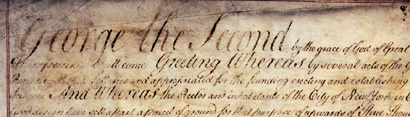 George the Second by the grace of God of Great
come Greeting Whereas by several acts of the G
and appropriated for the founding erecting and establishing
And Whereas the Rector and inhabitants of the City of New York in
sett apart a parcel of ground for that purpose of upwards of Three Thous